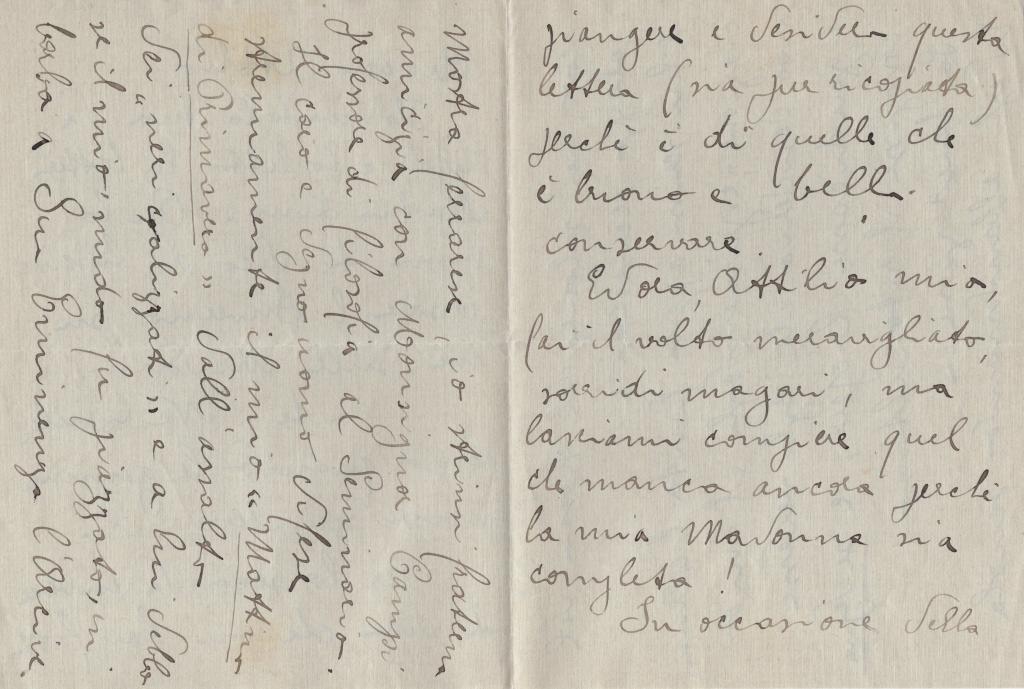 piangere e desidero questa
lettera (sia pur ricopiata)
perchè è di quelle che
è buono e bello
conservare.
Ed ora, Attilio mio,
fai il volto meravigliato,
sorridi magari, ma
lasciami compiere quel
che manca ancora perchè
la mia Madonna sia
completa!
In occasione della
Mostra ferrarese, io strinsi fraterna
amicizia con Monsignor Campi
professore di filosofia al Seminario.
Il caro e degno uomo difese
strenuamente il mio "Mattino
di Primavera" dall'assalto
dei "neri coalizzati" e a lui debbo
se il mio nudo fu piazzato, in
barba a Sua Eminenza l'Arcive.